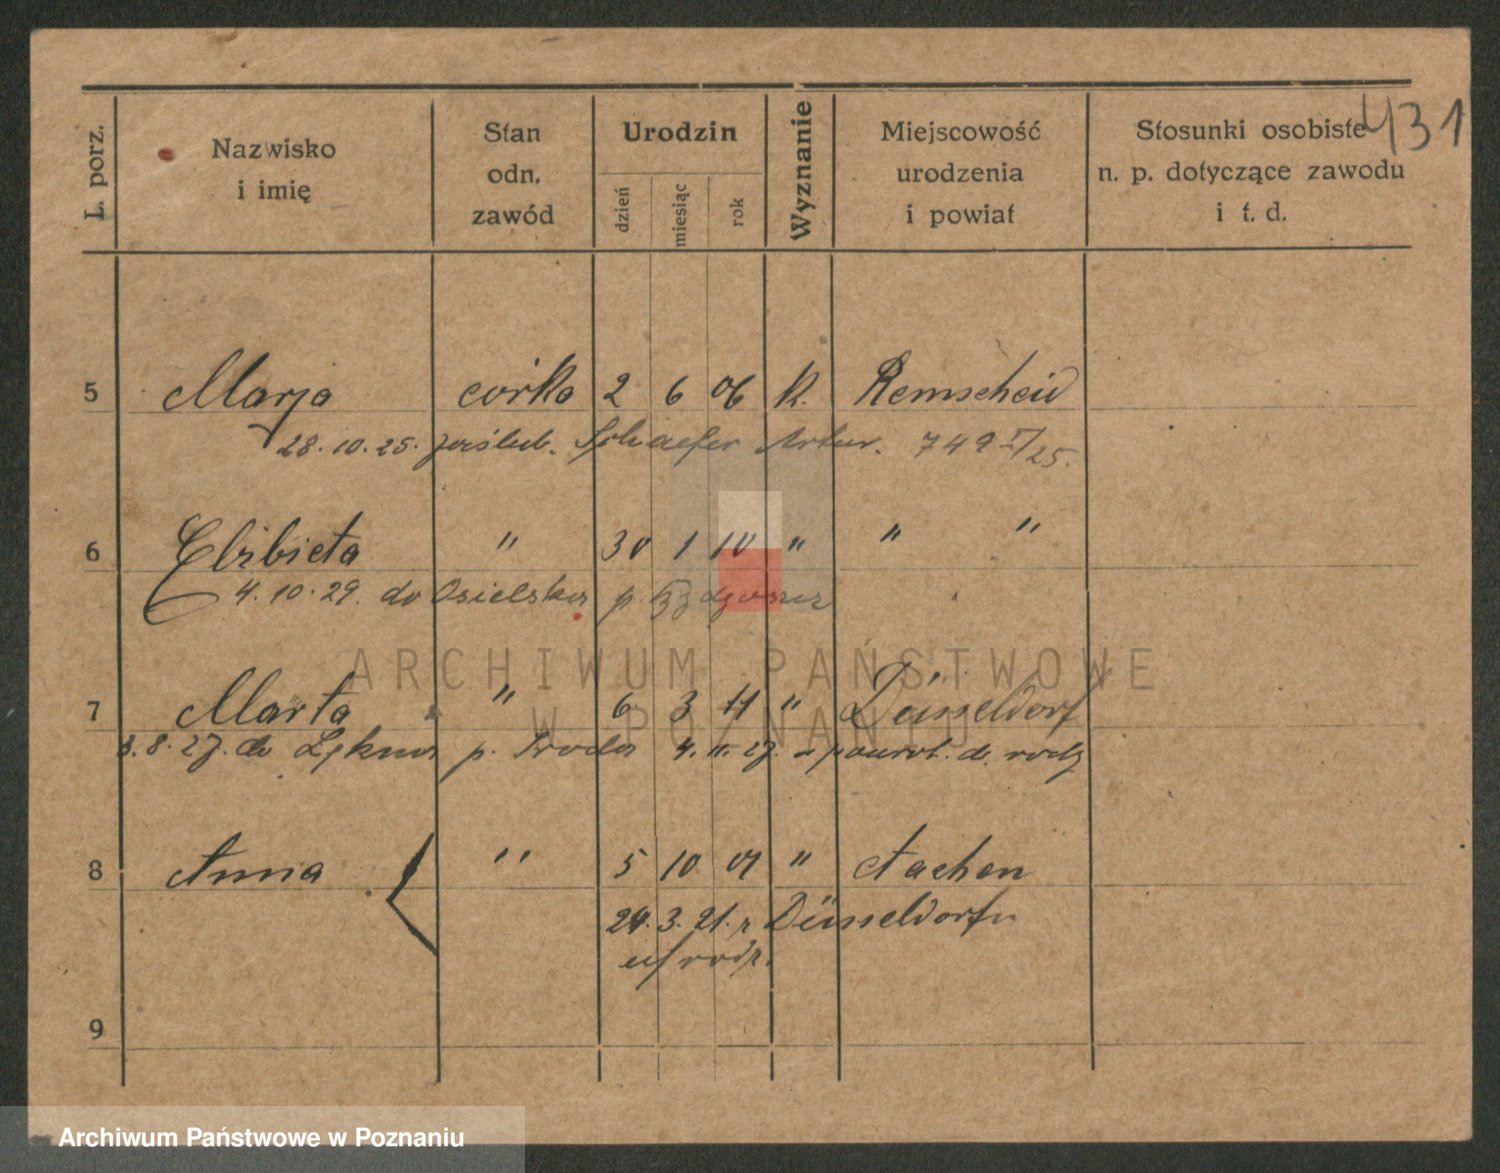 431
L. porz. Nazwisko i imię Stan odn. zawód Urodzin dzień miesiąc rok Wyznanie Miejscowość urodzenia i powiat Stosunki osobiste n. p. dotyczące zawodu i t. d.
5 Marja córka 2 6 06 k. Remscheid
28.10.25. zaślub. Schaefer Artur. 749 I/25.
6 Elżbieta " 30 1 10 " " "
4.10.29. do Osielska p. Bydgoszcz
ARCHIWUM PAŃSTWOWE
W POZNANIU
7 Marta " 6 3 11 " Düsseldorf
8.27. do p. Środa 4.11.27. powrot. do rodz
8 Anna " 5 10 " Aachen
24.3.21. z Düsseldorfu
9
Archiwum Państwowe w Poznaniu